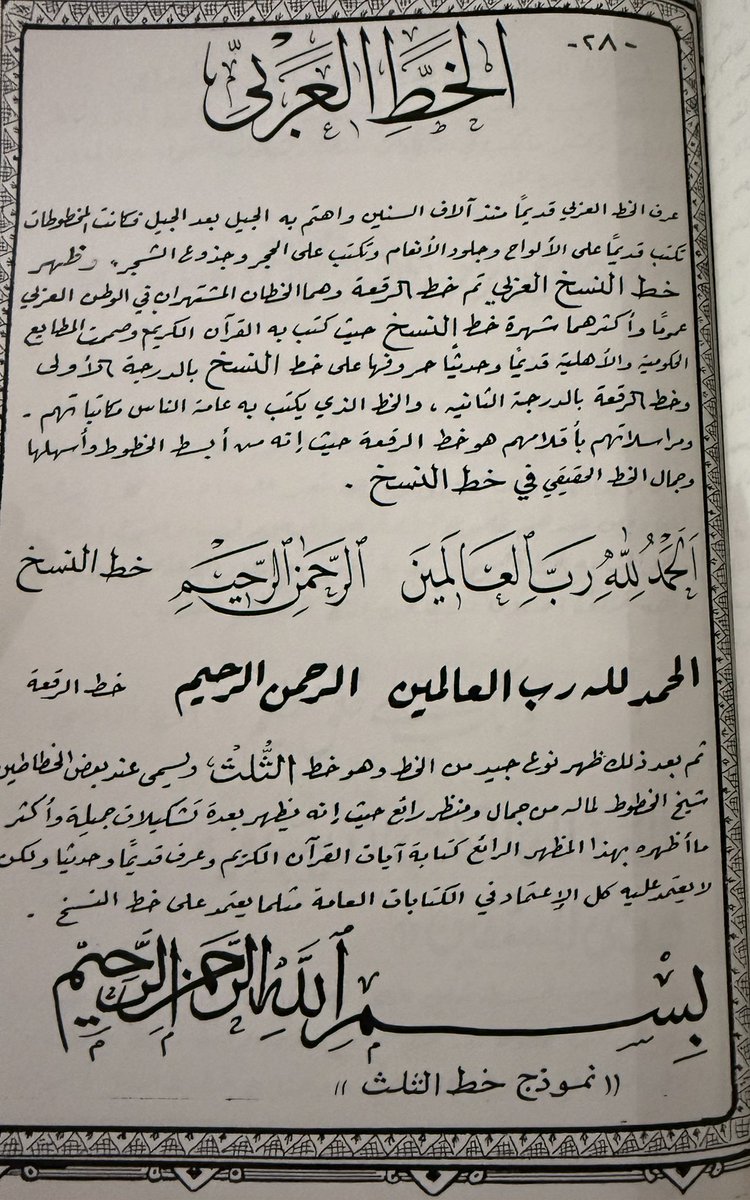 -٢٨-
الخط العربي
عرف الخط العربي قديمًا منذ آلاف السنين واهتم به الجيل بعد الجيل فكانت المخطوطات
تكتب قديمًا على الألواح وجلود الأنعام وتكتب على الحجر وجذوع الشجر، وظهر
خط النسخ العربي ثم خط الرقعة وهما الخطان المشتهران في الوطن العربي
عمومًا وأكثرهما شهرة خط النسخ حيث كتب به القرآن الكريم وصممت المطابع
الحكومية والأهلية قديمًا وحديثًا حروفها على خط النسخ بالدرجة الأولى
وخط الرقعة بالدرجة الثانيه، والخط الذي يكتب به عامة الناس مكاتباتهم -
ومراسلاتهم بأقلامهم هو خط الرقعة حيث إنه من أبسط الخطوط وأسهلها
وجمال الخط الحقيقي في خط النسخ .
اَلْحَمْدُ لِلّٰهِ رَبِّ الْعَالَمِينَ الرَّحْمٰنِ الرَّحِيمِ خط النسخ
الحمد لله رب العالمين الرحمن الرحيم خط الرقعة
ثم بعد ذلك ظهر نوع جيد من الخط وهو خط الثُّلُثْ، ويسمى عند بعض الخطاطين
شيخ الخطوط لماله من جمال ومنظر رائع حيث إنه يظهر بعدة تشكيلات جميلة وأكثر
ما أظهره بهذا المظهر الرائع كتابة آيات القرآن الكريم وعرف قديمًا وحديثًا ولكن
لا يعتمد عليه كل الإعتماد في الكتابات العامة مثلما يعتمد على خط النسخ -
بِسْمِ اللَّهِ الرَّحْمٰنِ الرَّحِيمِ
((نموذج خط الثلث))